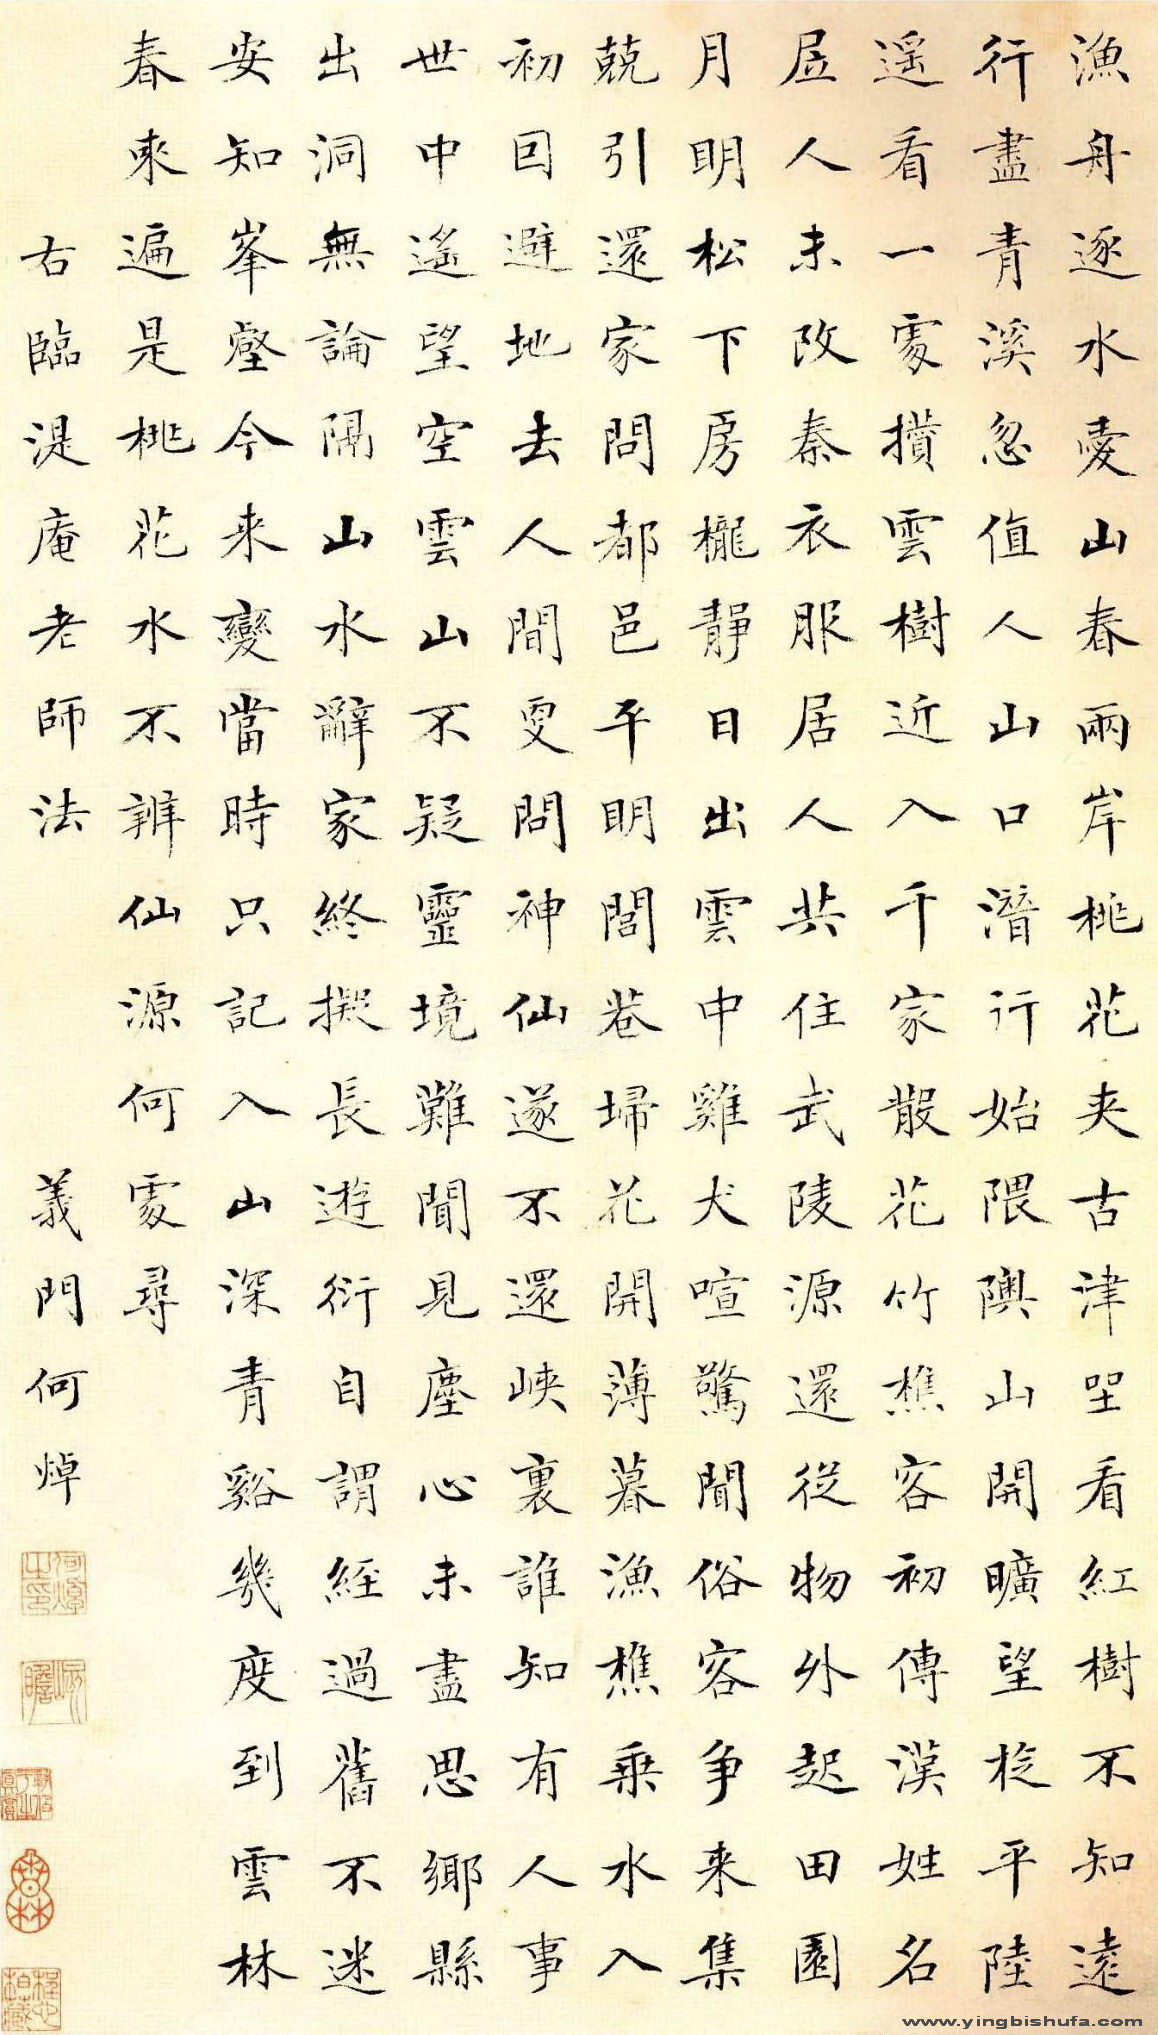 漁舟逐水愛山春兩岸桃花夾古津坐看紅樹不知遠
行盡青溪忽值人山口潛行始隈隩山開曠望旋平陸
遙看一處攢雲樹近入千家散花竹樵客初傳漢姓名
居人未改秦衣服居人共住武陵源還從物外起田園
月明松下房櫳靜日出雲中雞犬喧驚聞俗客爭来集
競引還家問都邑平明閭巷埽花開薄暮漁樵乘水入
初因避地去人間更問神仙遂不還峽裏誰知有人事
世中遙望空雲山不疑靈境難聞見塵心未盡思鄉縣
出洞無論隔山水辭家終擬長遊衍自謂經過舊不迷
安知峯壑今来變當時只記入山深青谿幾度到雲林
春來遍是桃花水不辨仙源何處尋
右臨湜庵老師法 義門何焯
何焯之印
屺瞻
www.yingbishufa.com